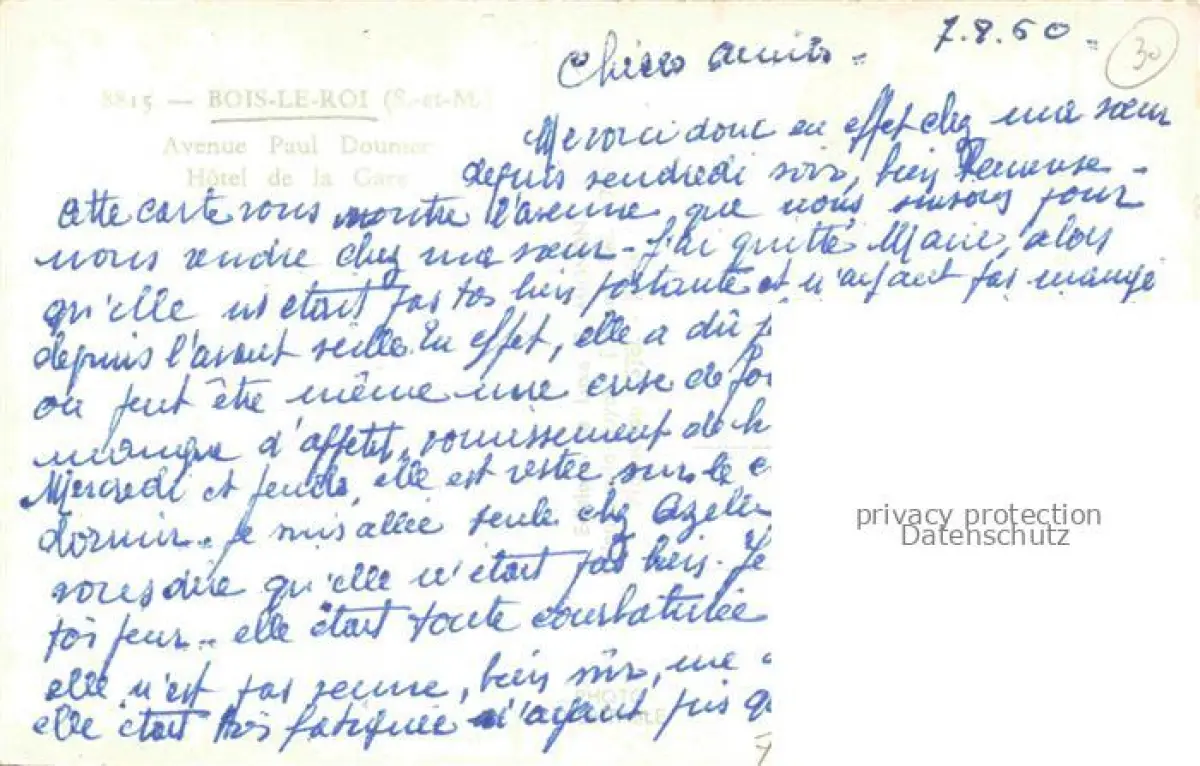 7.8.60.
30
Chères amies.
8815 — BOIS-LE-ROI (S.-et-M.)
Avenue Paul Doumer
Hôtel de la Gare
Me voici donc en effet chez ma sœur
depuis vendredi soir, bien heureuse.
Cette carte vous montre l'avenue que nous suivons pour
nous rendre chez ma sœur. J'ai quitté Marie, alors
qu'elle n'était pas très bien portante et n'ayant pas mangé
depuis l'avant veille. En effet, elle a dû
ou peut être même une crise de
manque d'appétit, vomissement de
Mercredi et jeudi, elle est restée sur le
dormir. Je suis allée seule chez
vous dire qu'elle n'était pas bien. Je
très peur. elle était toute courbaturée
elle n'est pas venue, bien sûr, me
elle était très fatiguée n'ayant pris
privacy protection
Datenschutz
PHOTO